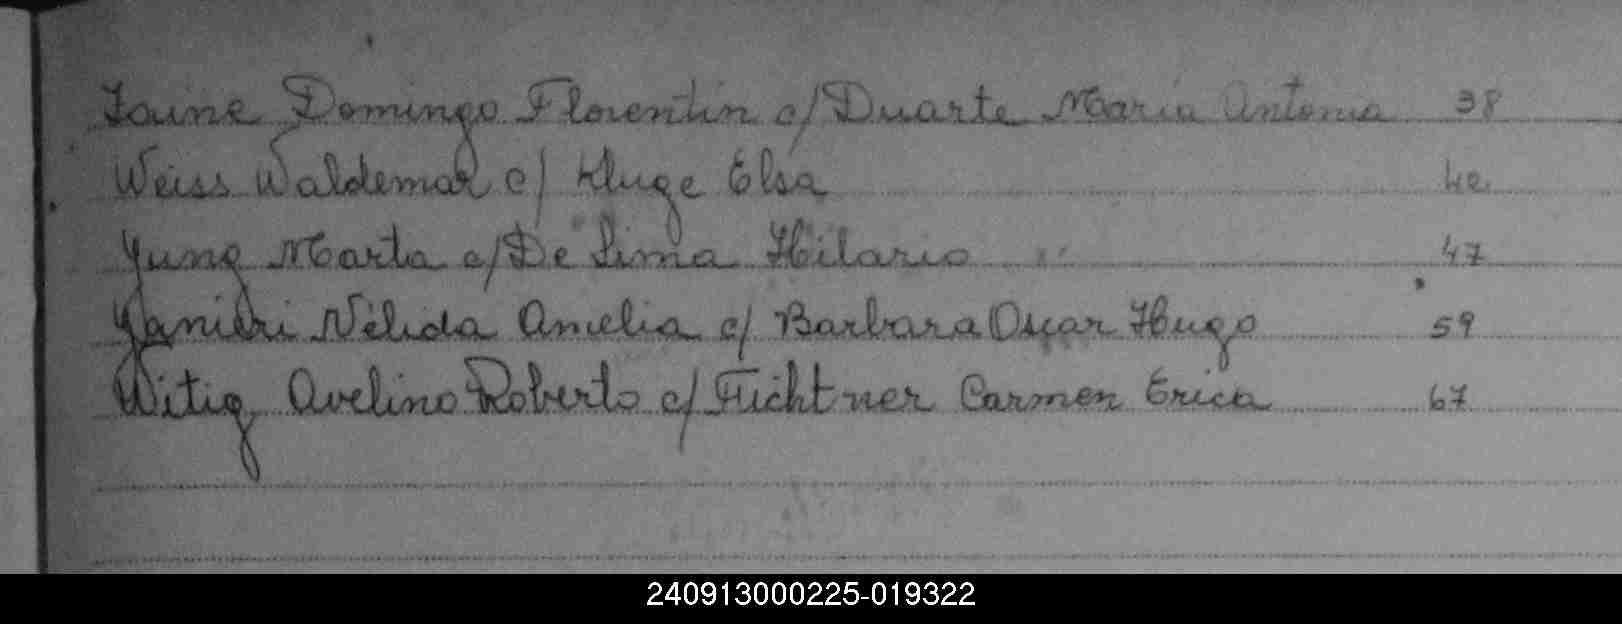 Domingo Florentin c/ Duarte Maria Antonia 38
Weiss Waldemar c/ Kluge Elsa 40
Yung Marta c/ De Lima Hilario 47
Yanieri Nélida Amelia c/ Barbara Oscar Hugo 59
Witig Avelino Roberto c/ Fuchtner Carmen Erica 67
240913000225-019322